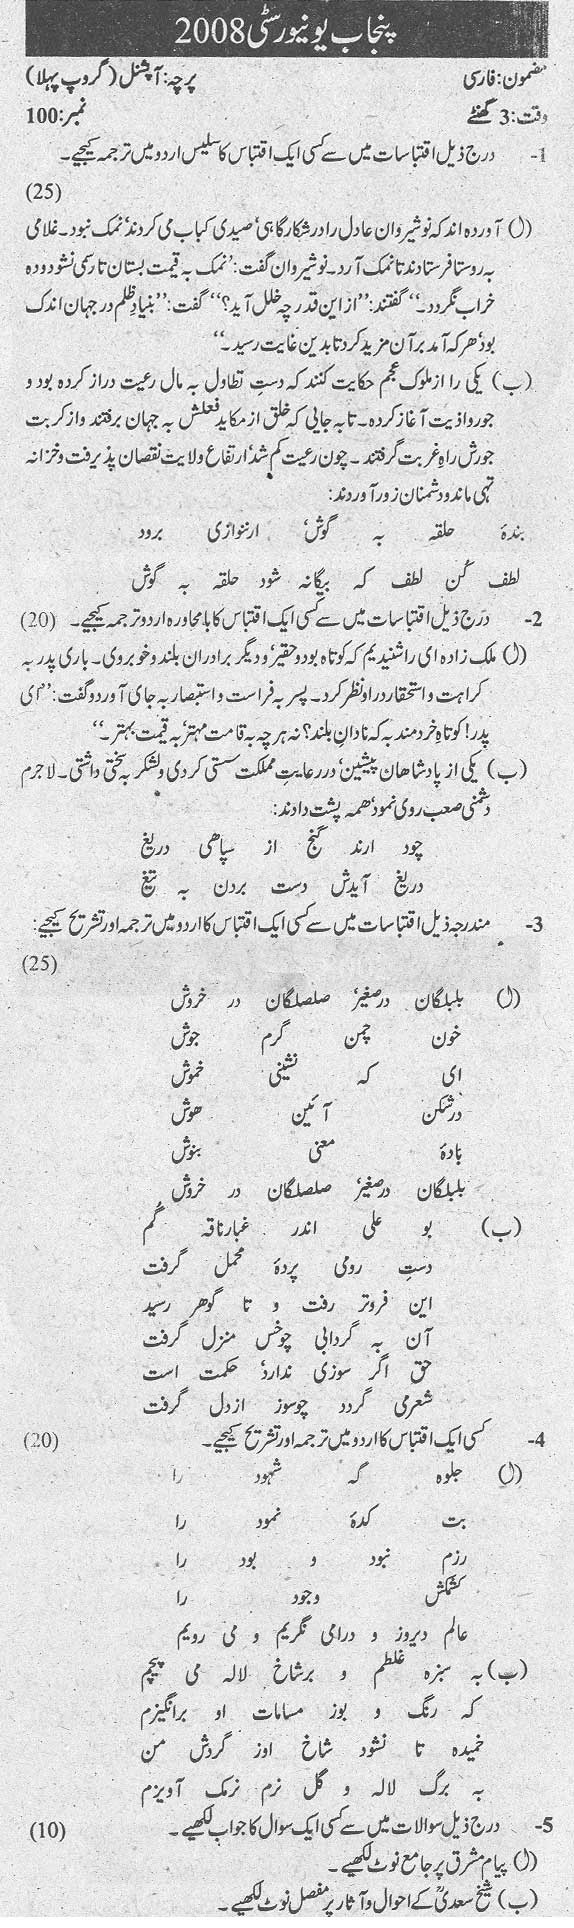 پنجاب یونیورسٹی 2008
مضمون: فارسی پرچہ: آپشنل (گروپ پہلا)
وقت: 3 گھنٹے نمبر: 100
1- درج ذیل اقتباسات میں سے کسی ایک اقتباس کا سلیس اردو میں ترجمہ کیجیے۔
(25)
(ا) آوردہ اند کہ نوشیروان عادل را در شکار گاہی، صیدی کباب می کردند، نمک نبود۔ غلامی
بہ روستا فرستادند تا نمک آرد۔ نوشیروان گفت: ’نمک بہ قیمت بستان تا رسمی نشود و دہ
خراب نگردد۔‘‘ گفتند: ’’ازاین قدر چہ خلل آید؟‘‘ گفت: ’’بنیادِ ظلم در جہان اندک
بود، ھر کہ آمد بر آن مزید کرد تا بدین غایت رسید۔‘‘
(ب) یکی را از ملوک عجم حکایت کنند کہ دستِ تطاول بہ مال رعیت دراز کردہ بود و
جور و اذیت آغاز کردہ۔ تا بہ جایی کہ خلق از مکاید فعلش بہ جہان برفتند و از کربت
جورش راہِ غربت گرفتند۔ چون رعیت کم شد، ارتفاع ولایت نقصان پذیرفت و خزانہ
تہی ماند و دشمنان زور آوردند:
بندۂ حلقہ بہ گوش، ارننوازی برود
لطف کُن لطف کہ بیگانہ شود حلقہ بہ گوش
2- درج ذیل اقتباسات میں سے کسی ایک اقتباس کا بامحاورہ اردو ترجمہ کیجیے۔ (20)
(ا) ملک زادہ ای را شنیدیم کہ کوتاہ بود و حقیر، و دیگر برادران بلند و خوبروی۔ باری پدر بہ
کراہت و استحقار در او نظر کرد۔ پسر بہ فراست و استبصار بہ جای آورد و گفت: ’’ای
پدر! کوتاہِ خردمند بہ کہ نادانِ بلند؟ نہ ہرچہ بہ قامت مہتر، بہ قیمت بہتر۔‘‘
(ب) یکی از پادشاھان پیشین، در رعایتِ مملکت سستی کردی و لشکر بہ سختی داشتی۔ لاجرم
دشمنی صعب روی نمود، ھمہ پشت دادند:
چود ارند گنج از سپاھی دریغ
دریغ آیدش دست بردن بہ تیغ
3- مندرجہ ذیل اقتباسات میں سے کسی ایک اقتباس کا اردو میں ترجمہ اور تشریح کیجیے:
(25)
(ا) بلبلگان در صغیر، صلصلگان در خروش
خون چمن گرم جوش
ای کہ نشینی خموش
در شکن آئین ھوش
بادۂ معنی بنوش
بلبلگان در صغیر، صلصلگان در خروش
(ب) بو علی اندر غبار ناقہ گُم
دستِ رومی پردۂ محمل گرفت
این فروتر رفت و تا گوھر رسید
آن بہ گردابی چوخس منزل گرفت
حق اگر سوزی ندارد، حکمت است
شعرمی گردد چوسوز ازدل گرفت
4- کسی ایک اقتباس کا اردو میں ترجمہ اور تشریح کیجیے۔ (20)
(ا) جلوہ گہ شہود را
بت کدۂ نمود را
رزم نبود و بود را
کشمکش وجود را
عالم دیروز و درامی نگریم و می رویم
(ب) بہ سبزہ غلطم و بر شاخ لالہ می پیچم
کہ رنگ و بوز مسامات او برانگیزم
خمیدہ تا نشود شاخ اوز گردش من
بہ برگ لالہ و گل نرم نرمک آویزم
5- درج ذیل سوالات میں سے کسی ایک سوال کا جواب لکھیے۔ (10)
(ا) پیام مشرق پر جامع نوٹ لکھیے۔
(ب) شیخ سعدیؒ کے احوال و آثار پر مفصل نوٹ لکھیے۔